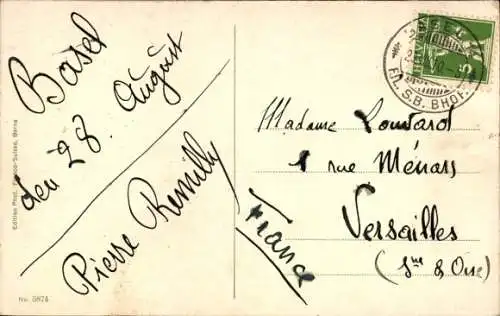 Basel
den 28. August
Pierre Remilly
Edition Phot. Franco-Suisse, Berne
No. 5874
BASEL
FIL. S.B. BHOF.
5
Madame Loustarot
1 rue Ménars
Versailles
(Sne & Oise)
France